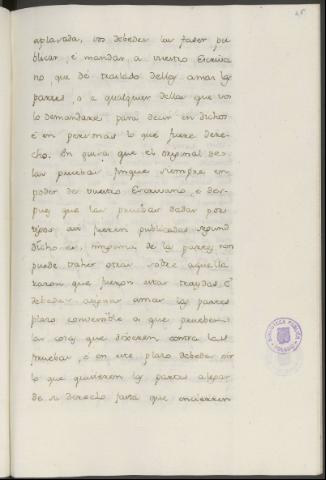 aplazada, vos debedes las facer pu
blicar, e mandar a vuestro Escriva
no, que dè traslado dellas amas las
partes, o a qualquier dellas que vos
lo demandare para decir en dichos
è en personas lo que fuere dere-
cho. En guisa que el original des-
tas pruebas finque siempre en
poder de vuestro Escrivano, e des-
pues que las pruebas dadas por
testigos asi fueren publicadas segund
dicho es, ninguna de las partes non
puede traher otras sobre aquella
razon que fueron estas traydas, è
debedes asignar amas las partes
plazo convenible a que prueben
las cosas que dixeren contra las
pruebas, è en este plazo debedes oir
lo que quisieren las partes alegar
de su derecho fasta que encierren